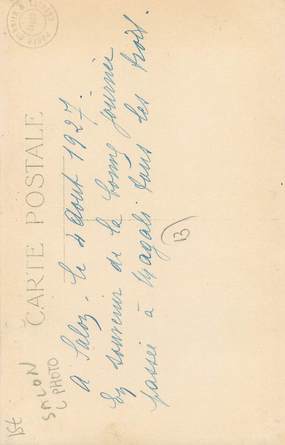 CARTE POSTALE
A Salon, le 4 Août 1927.
En souvenir de la bonne journée
passée à Magali tous les trois.
13
SALON
C PHOTO